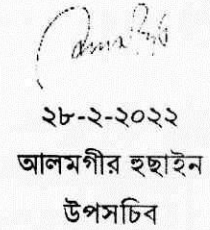 ২৮-২-২০২২
আলমগীর হুছাইন
উপসচিব